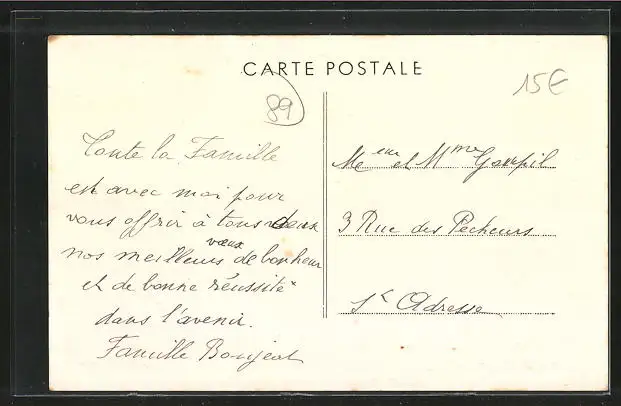 CARTE POSTALE
15€
89
Toute la Famille
est avec moi pour
vous offrir à tous deux
nos meilleurs vœux de bonheur
et de bonne réussite
dans l'avenir.
Famille Boujeat
Meur et Mme Goupil
3 Rue des Pecheurs
Ste Adresse